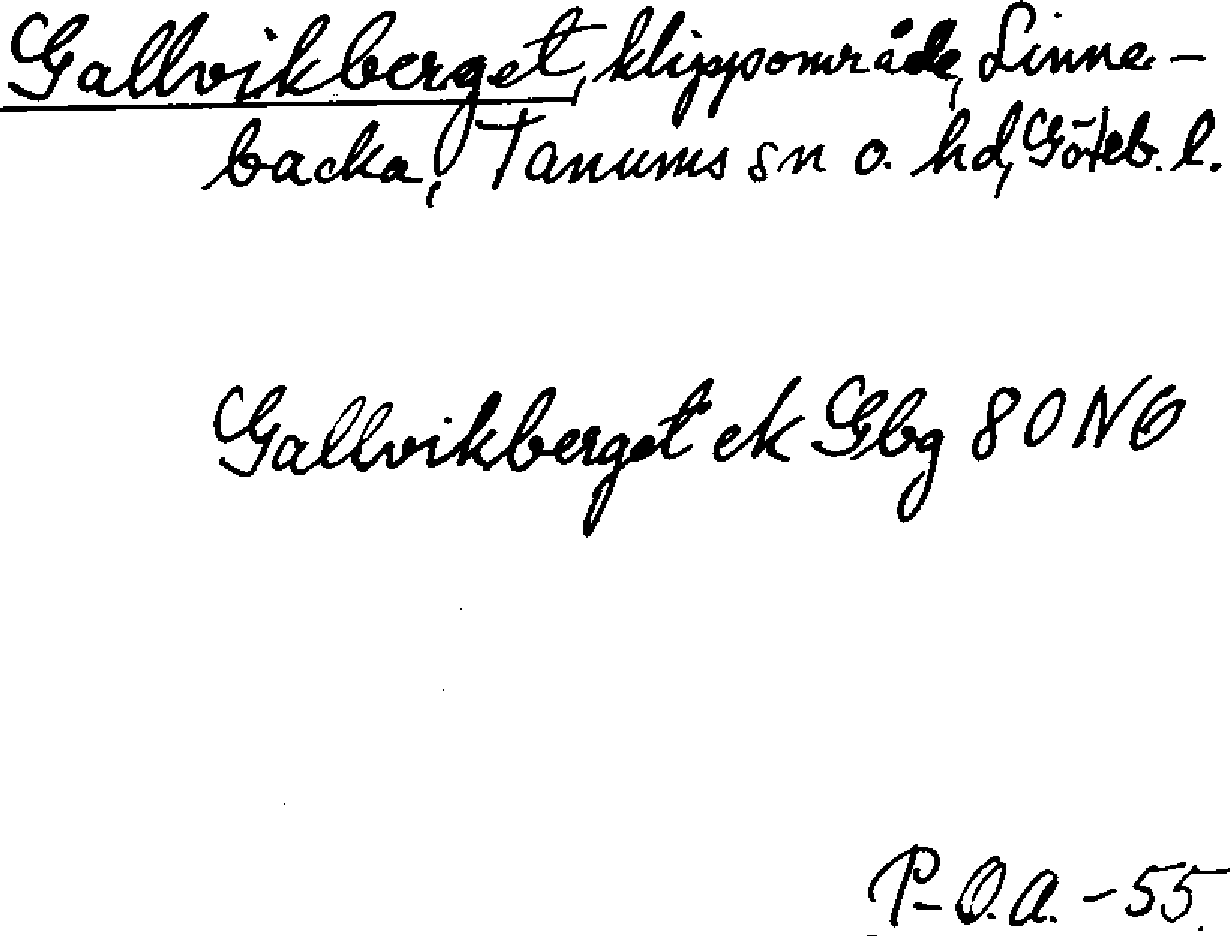 Gallvikberget, klippområde, Linne-
backa, Tanums sn o. hd, Göteb. l.
Gallvikberget ek Gbg 80 NO
P-O.A. -55.